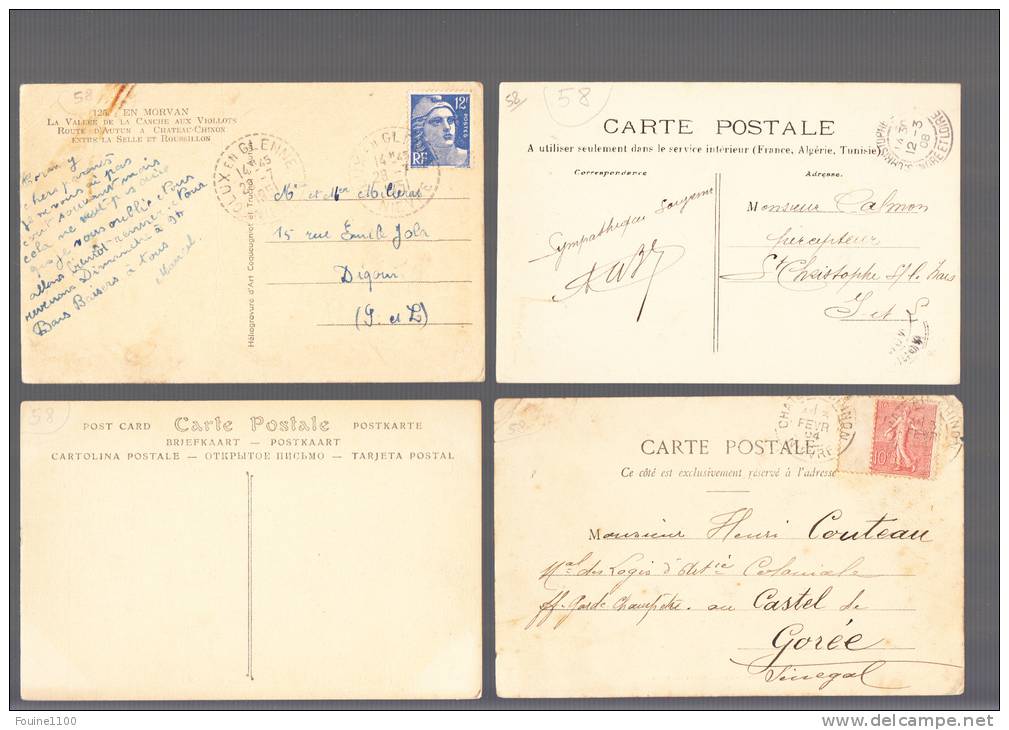 58
125. EN MORVAN
LA VALLÉE DE LA CANCHE AUX VIOLLOTS
ROUTE D'AUTUN A CHATEAU-CHINON
ENTRE LA SELLE ET ROUSSILLON
12F
POSTES
RF
EN GLENNE
chers parents
je ne vous ai pas
écrit souvant mais
cela ne veut pas dire
que je vous oublie. Nous
allons bientôt
revenons Dimanche à 9h
Bons Baisers à tous
Marcel
Héliogravure d'Art Coqueugniot et
Mr et Mme
15 rue Emile Zola
Digoin
(S. et L)
58
58
CARTE POSTALE
A utiliser seulement dans le service intérieur (France, Algérie, Tunisie)
Correspondance
Adresse.
12 - 3
08
Sympathique
Monsieur Calmon
percepteur
St Christophe s/l.
I et L
58
POST CARD Carte Postale POSTKARTE
BRIEFKAART — POSTKAART
CARTOLINA POSTALE — ОТКРЫТОЕ ПИСЬМО — TARJETA POSTAL
58
CARTE POSTALE
Ce côté est exclusivement réservé à l'adresse
FEVR
10
Monsieur Henri Couteau
Mal des Logis d'Artie Coloniale
ff. Garde Champêtre au Castel de
Gorée
Sénégal
Fouine1100
delcampe.net